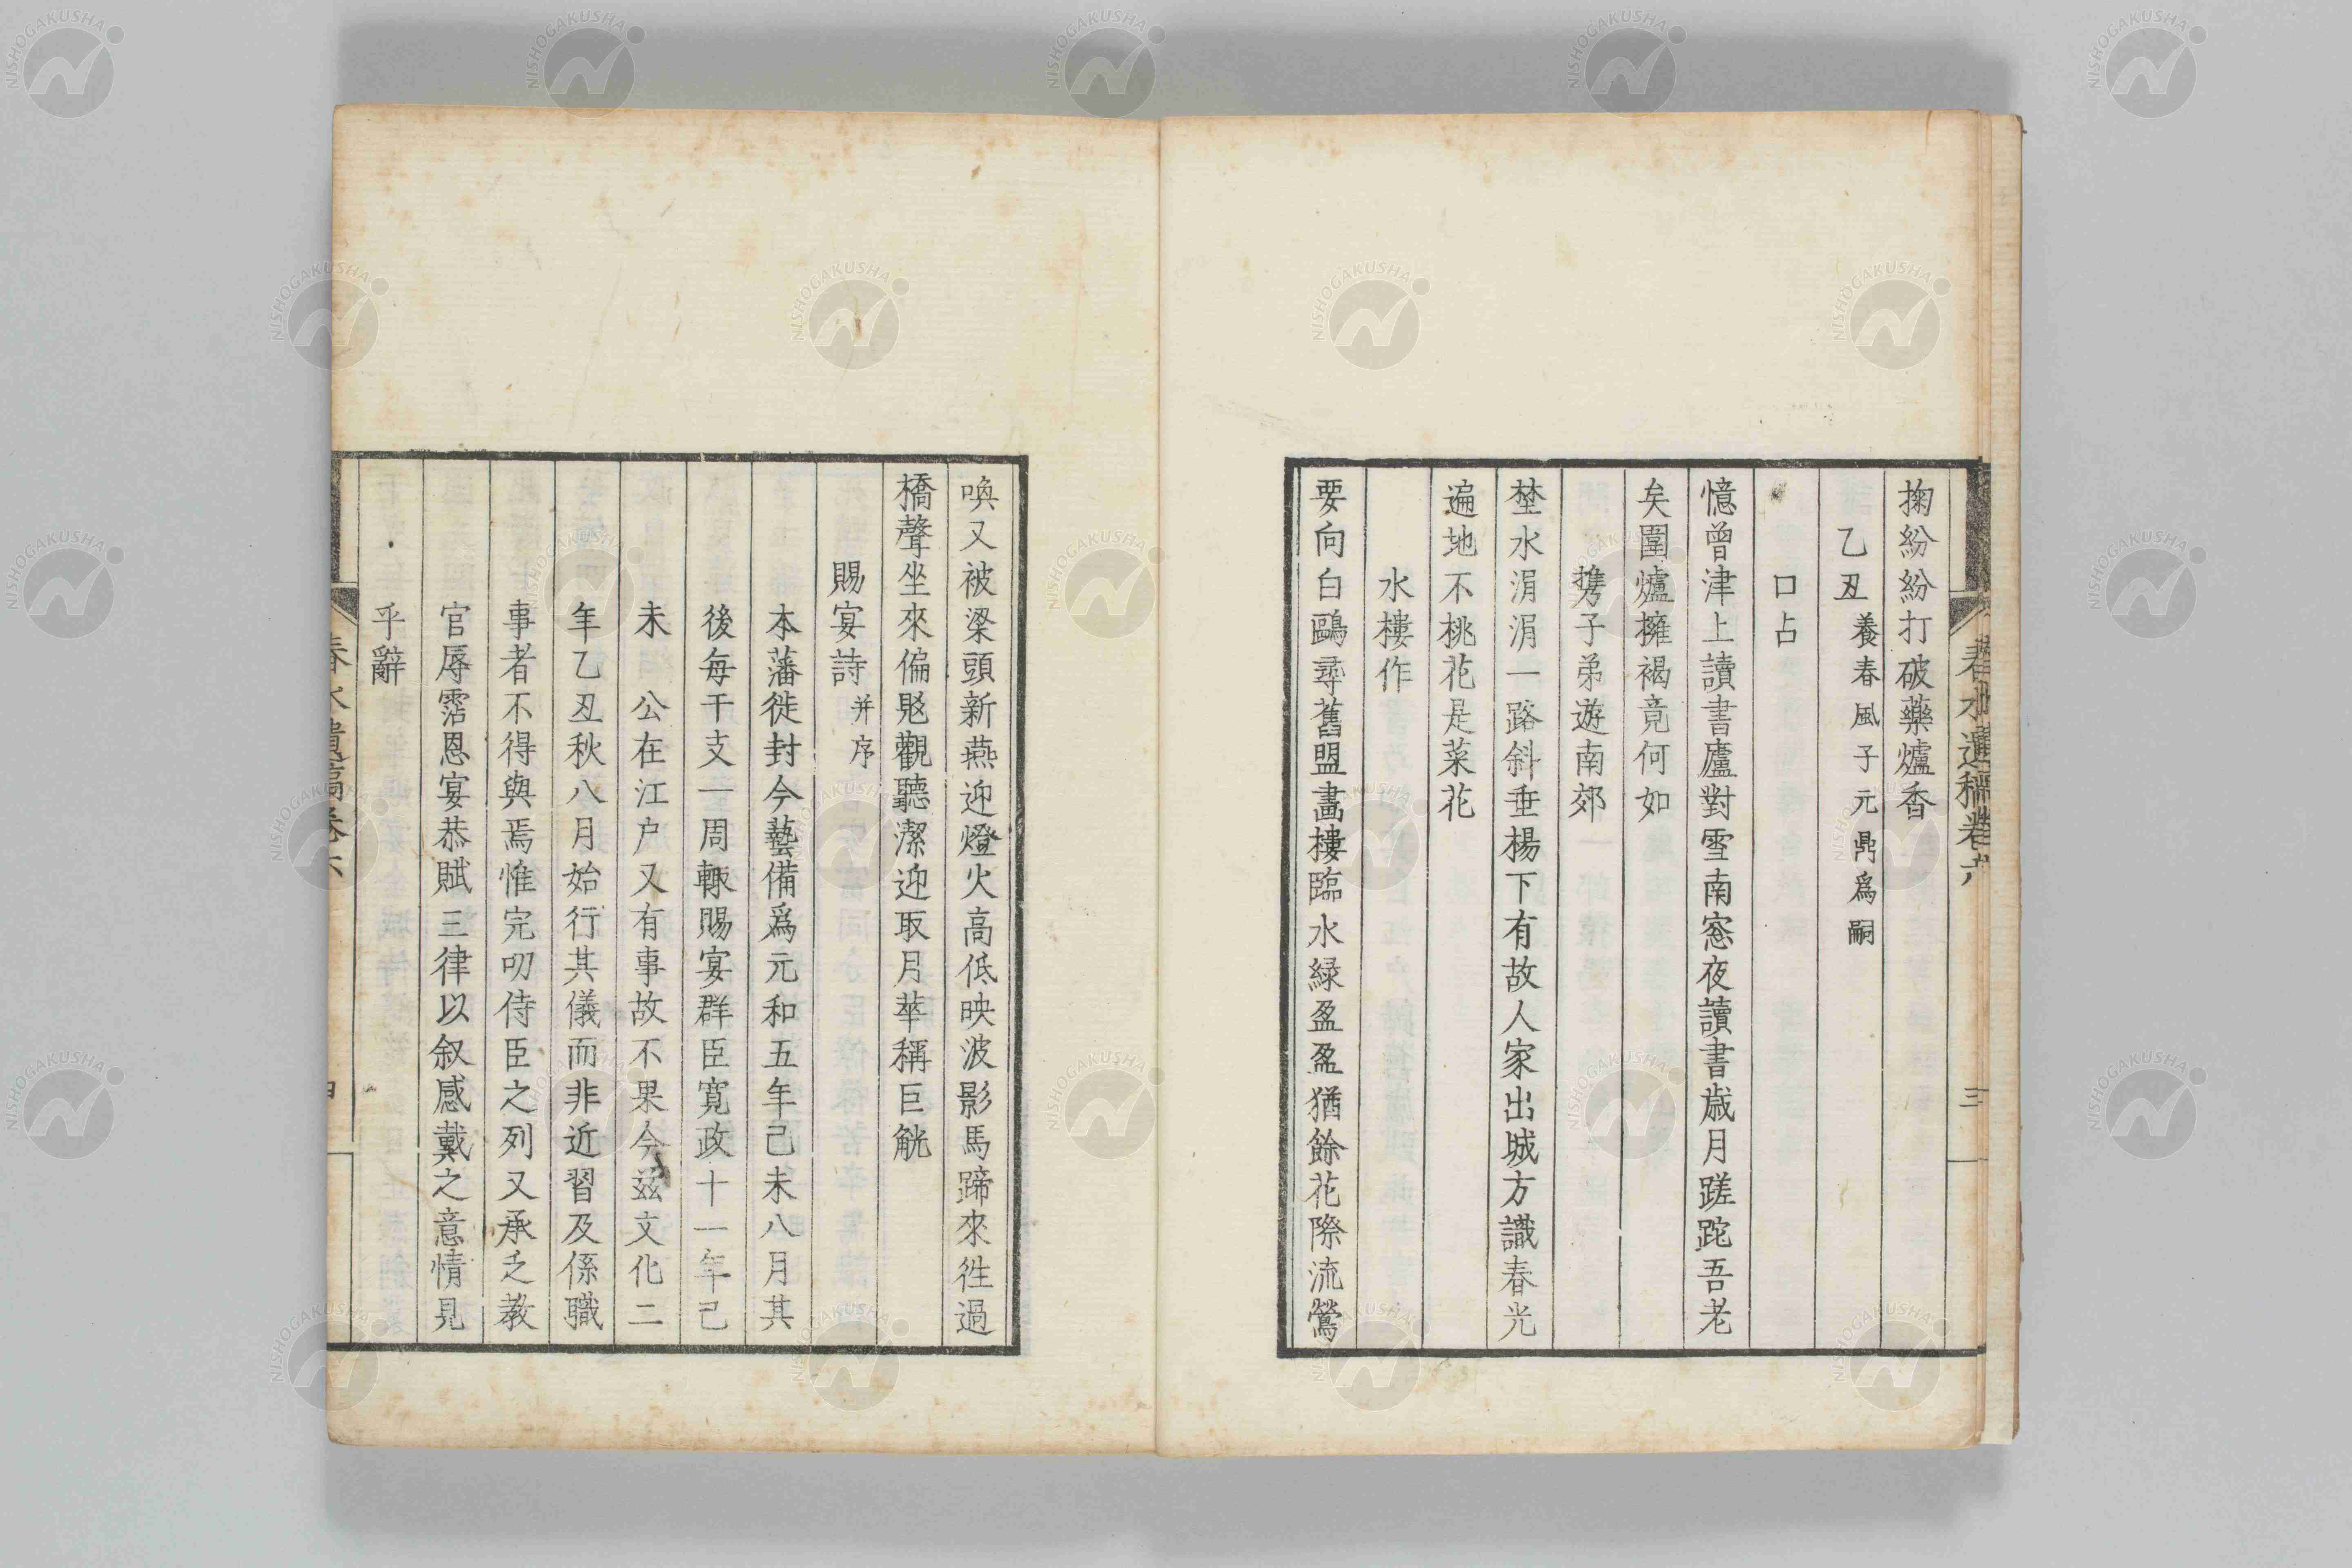 掬紛紛打破藥爐香
乙丑養春風子元鼎爲嗣
口占
憶曾津上讀書廬對雪南窓夜讀書歳月蹉跎吾老
矣圍爐擁褐竟何如
携子弟遊南郊
埜水涓涓一路斜垂楊下有故人家出城方識春光
遍地不桃花是菜花
水樓作
要向白鷗尋舊盟畵樓臨水緑盈盈猶餘花際流鶯
春水遺稿卷六
三
喚又被梁頭新燕迎燈火高低映波影馬蹄來徃過
橋聲坐來偏覐觀聽潔迎取月華稱巨觥
賜宴詩并序
本藩徙封今藝備爲元和五年己未八月其
後每干支一周輙賜宴群臣寛政十一年己
未 公在江户又有事故不果今茲文化二
年乙丑秋八月始行其儀而非近習及係職
事者不得與焉惟完叨侍臣之列又承乏教
官辱霑恩宴恭賦三律以叙感戴之意情見
乎辭
春水遺稿卷六
四
NISHOGAKUSHA